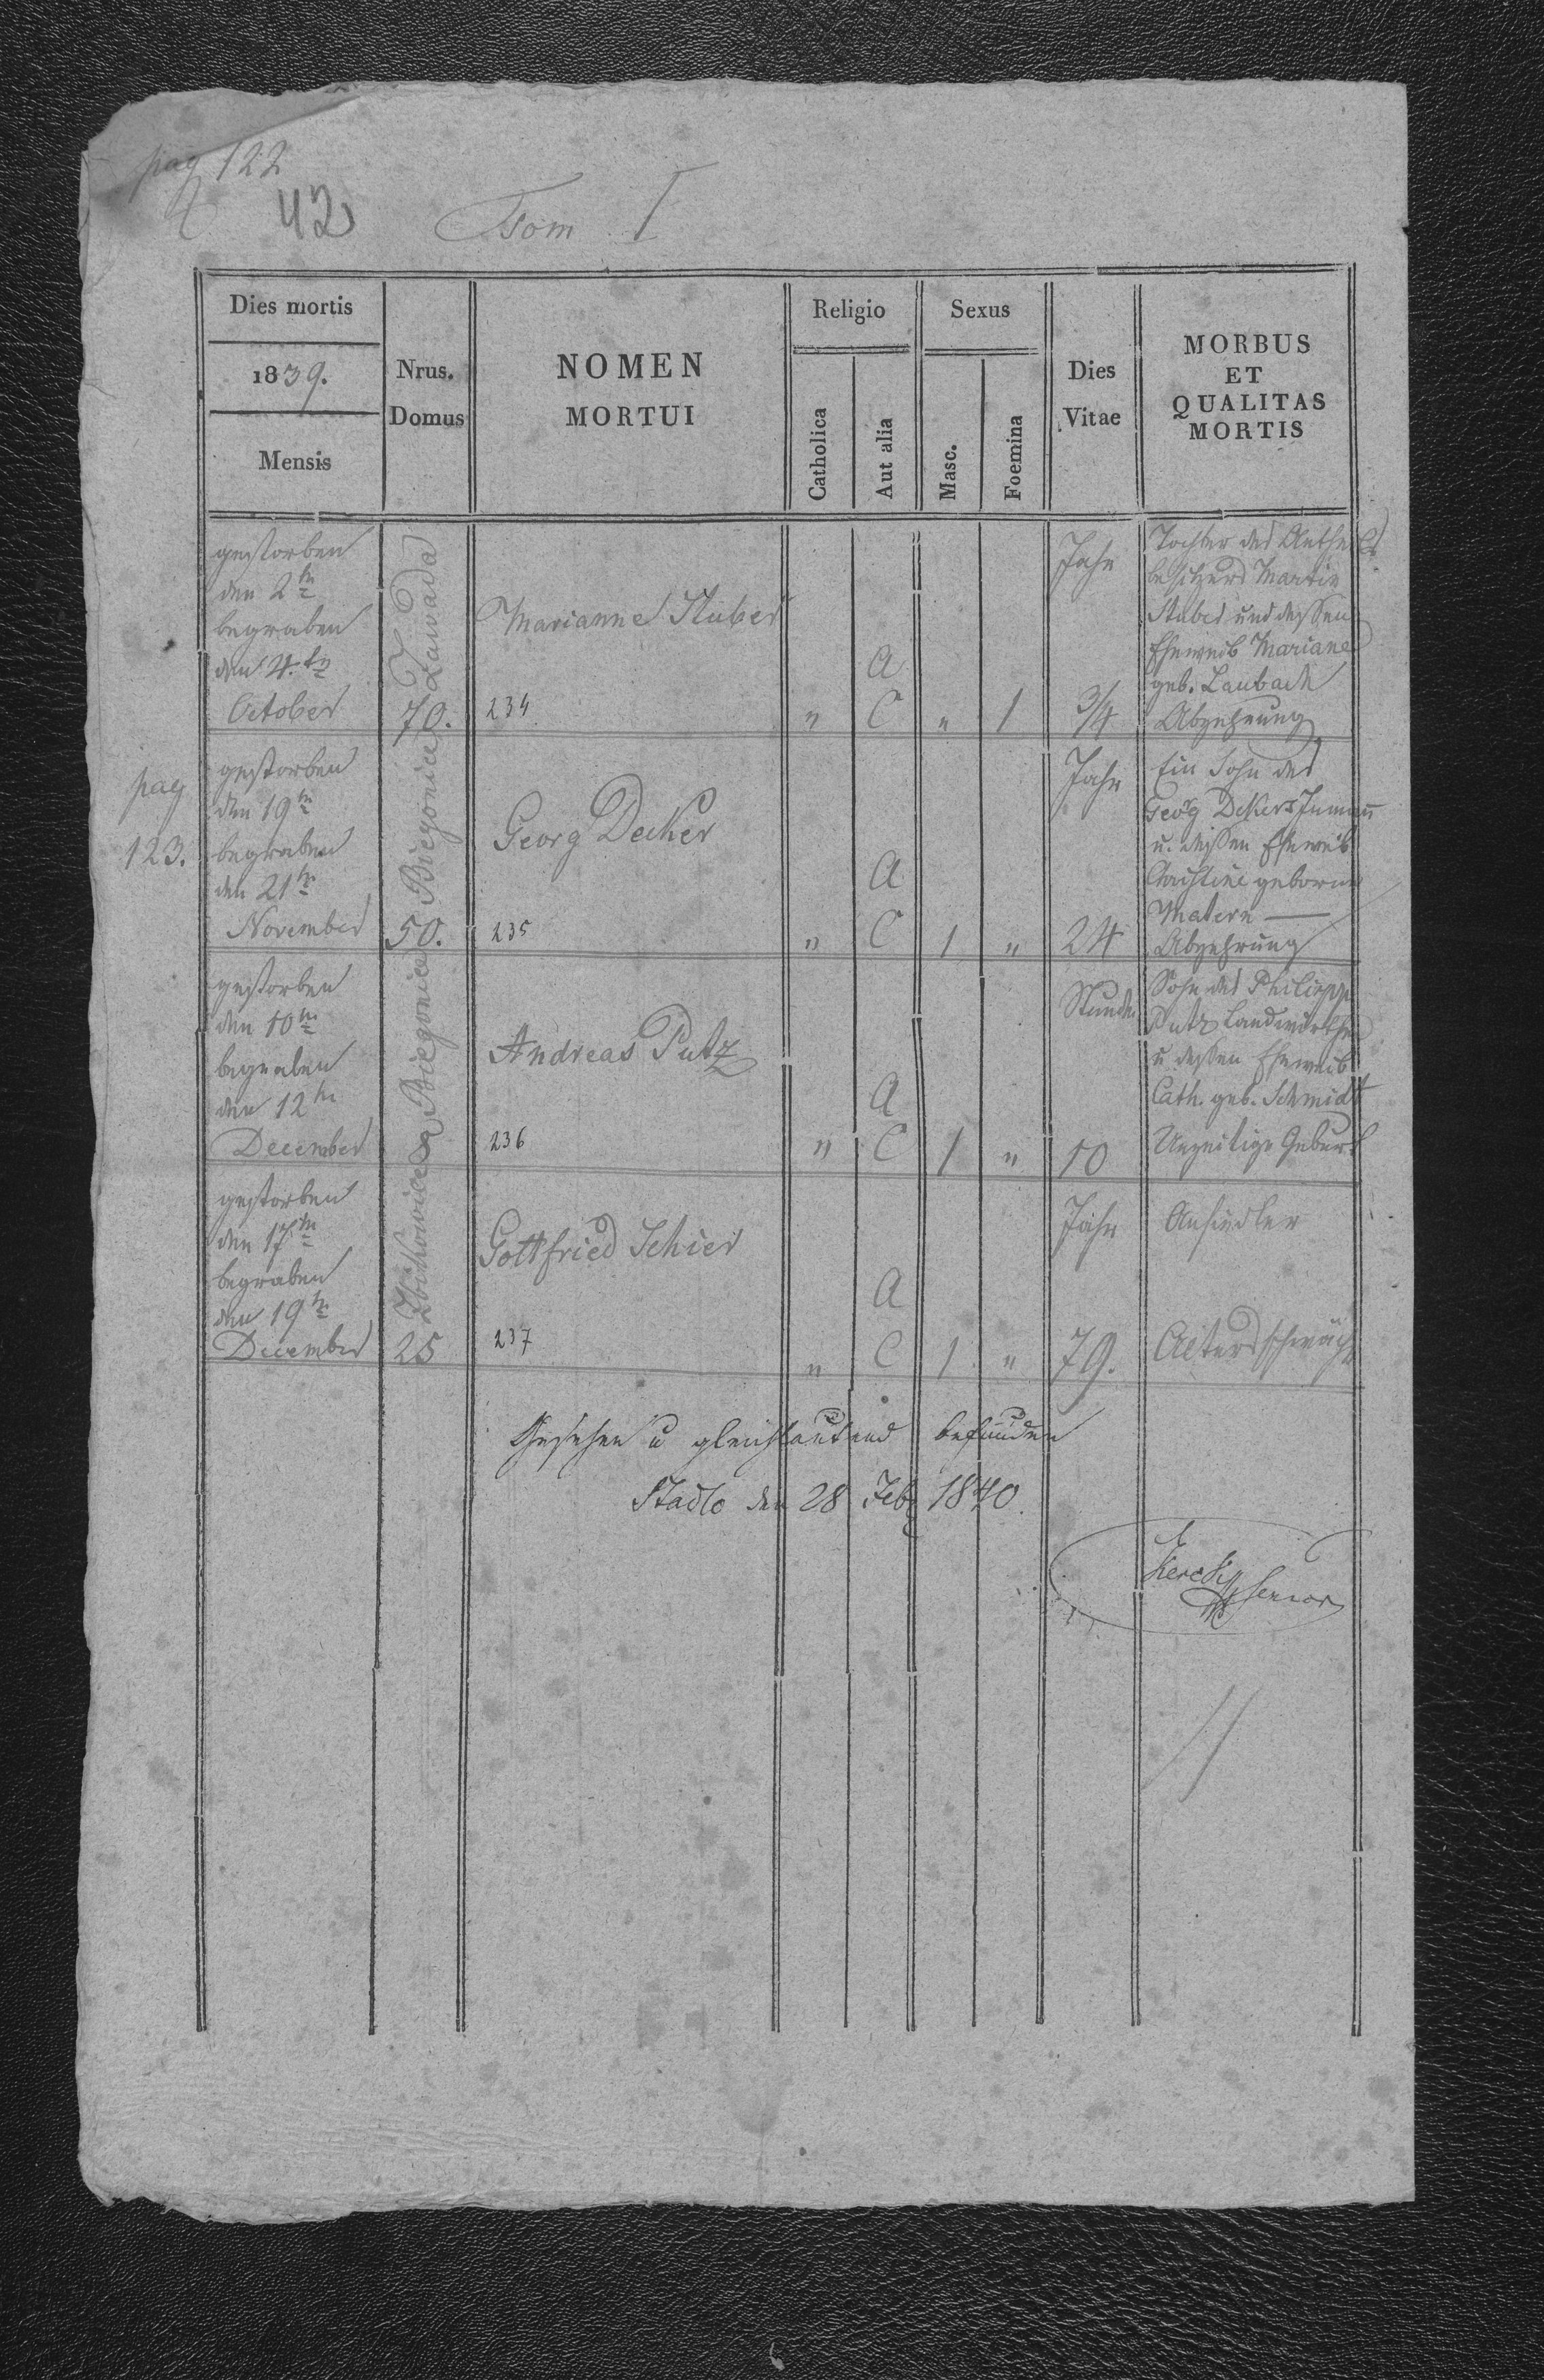 pag 122
42 Tom I
Dies mortis
1839.
Mensis
Nrus.
Domus
NOMEN
MORTUI
Religio
Catholica
Aut alia
Sexus
Masc.
Foemina
Dies
Vitae
MORBUS
ET
QUALITAS
MORTIS
gestorben
den 2tn
begraben
den 4.tn
October
Zawada
70.
Marianne Stuber
234
"
A
C
"
1
Jahr
3/4
Tochter des
besitzers Martin
Stuber und dessen
Eheweib Mariane
geb. Laubach
Abzehrung
pag
123.
gestorben
den 19tn
begraben
den 21tn
November
Biegonice
50.
Georg Decker
235
"
A
C
1
"
Jahr
24
Ein Sohn des
Georg Deckers Inmann
u. dessen Eheweib
Christine geborne
Matern —
Abzehrung
gestorben
den 10tn
begraben
den 12tn
December
Biegonice
Andreas Putz
236
"
A
C
1
"
Stunden
10
Sohn des Philipp
Putz Landwirthe
u dessen Eheweib
Cath. geb. Schmidt
Unzeitige Geburt
gestorben
den 17tn
begraben
den 19tn
December
25
Gottfried Schier
237
"
A
C
1
"
Jahr
79.
Ansiedler
Altersschwäche
Gesehen u gleichlautend befunden
Stadlo den 28 Feb 1840.
senior